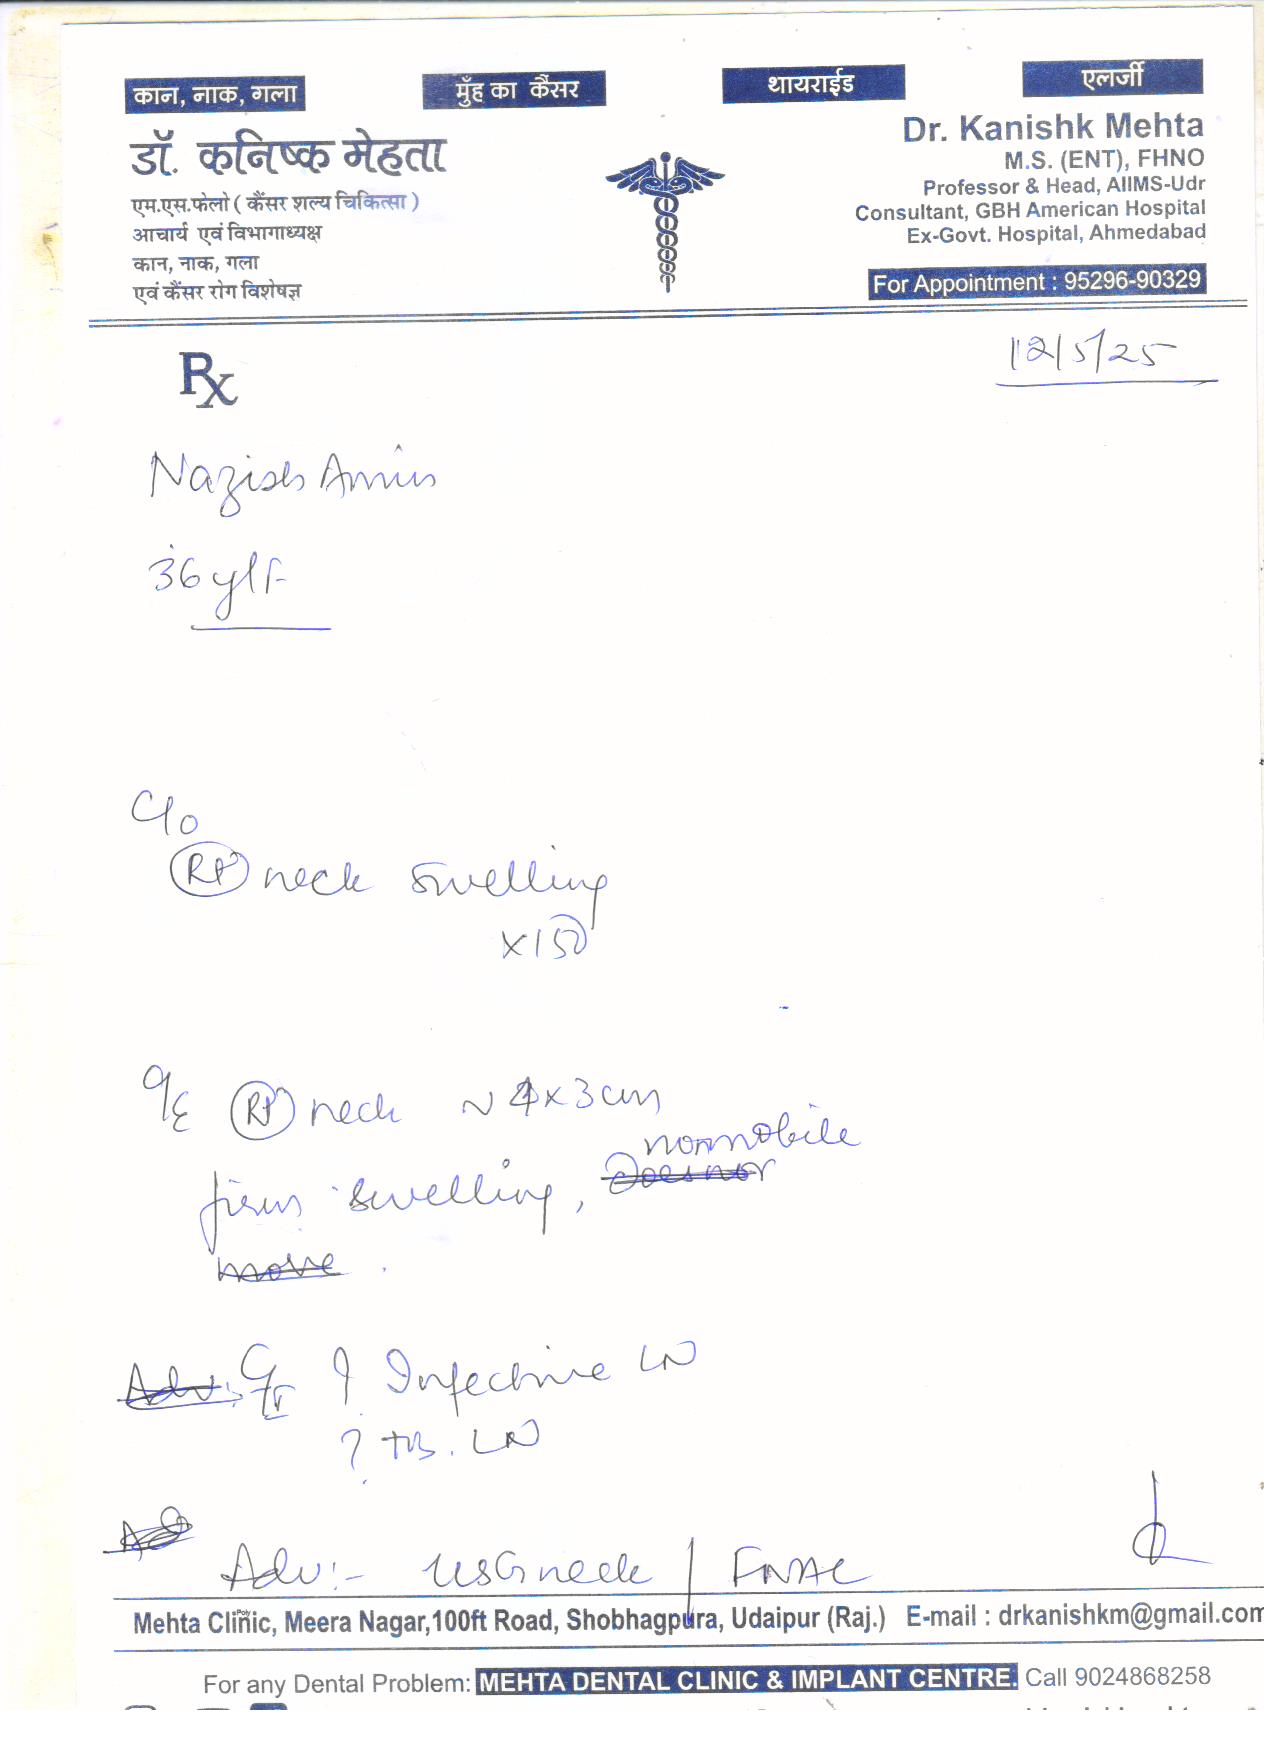 कान, नाक, गला
मुँह का कैंसर
थायराईड
एलर्जी
डॉ. कनिष्क मेहता
एम.एस.फेलो ( कैंसर शल्य चिकित्सा )
आचार्य एवं विभागाध्यक्ष
कान, नाक, गला
एवं कैंसर रोग विशेषज्ञ
Dr. Kanishk Mehta
M.S. (ENT), FHNO
Professor & Head, AIIMS-Udr
Consultant, GBH American Hospital
Ex-Govt. Hospital, Ahmedabad
For Appointment : 95296-90329
Rx
12/5/25
Nazish Amin
36 y/F
C/o
Rt neck swelling
x 15D
O/E Rt neck ~ 4 x 3 cm
nonmobile
firm swelling, Does not
move .
Adv:- ? Infective LN
? TB. LN
Adv:- USG neck / FNAC
Mehta Clinic, Meera Nagar,100ft Road, Shobhagpura, Udaipur (Raj.) E-mail : drkanishkm@gmail.com
For any Dental Problem: MEHTA DENTAL CLINIC & IMPLANT CENTRE. Call 9024868258